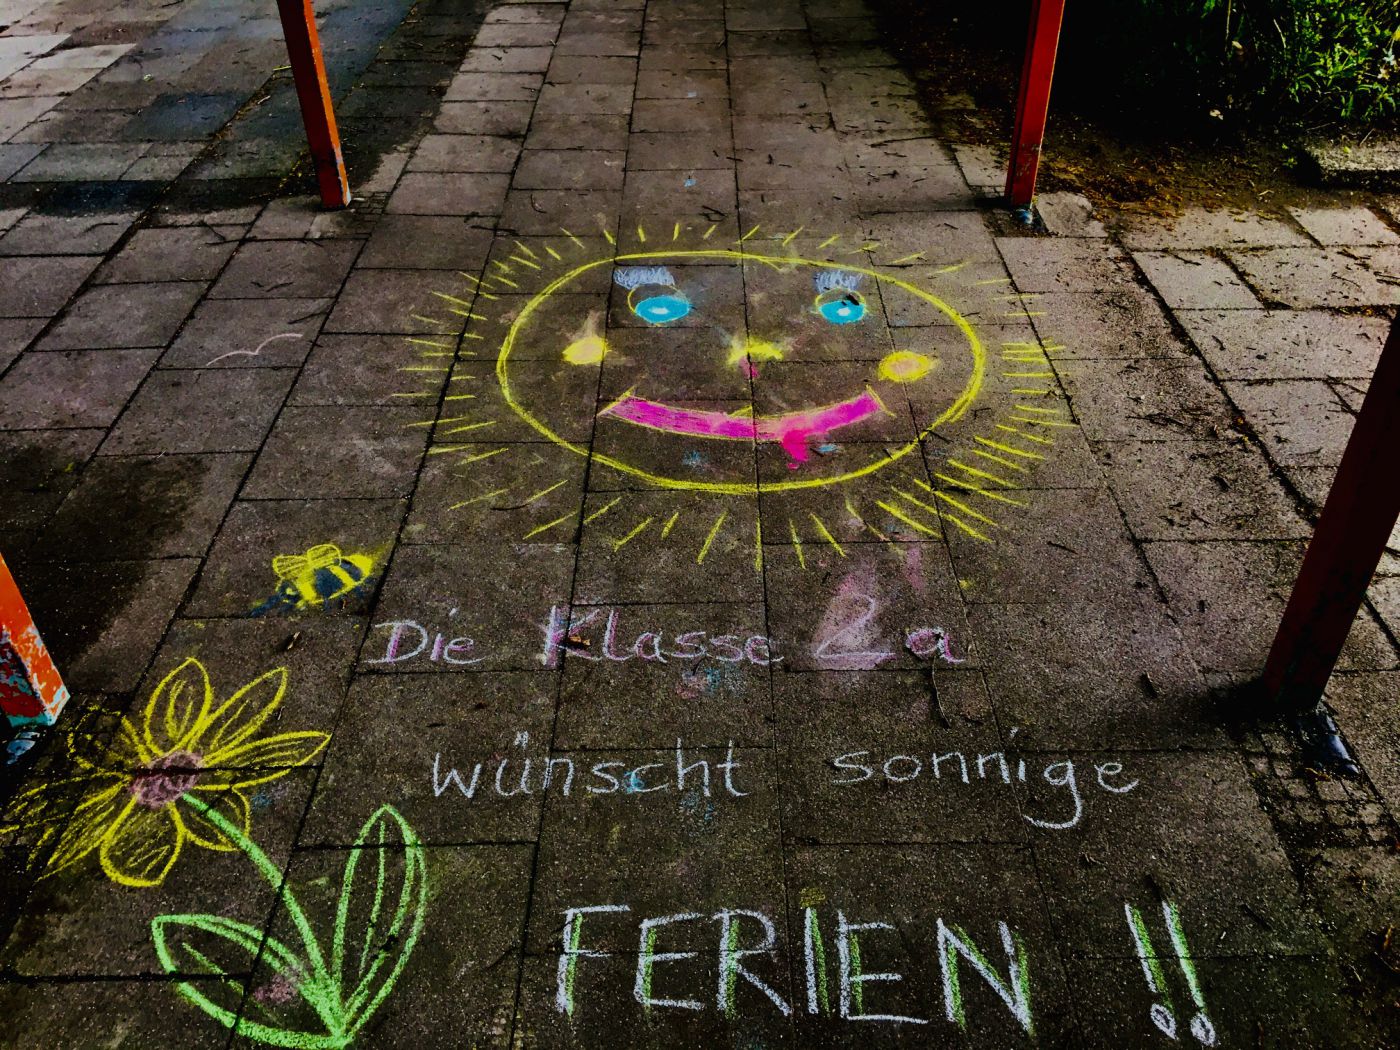 Die Klasse 2a
wünscht sonnige
FERIEN !!